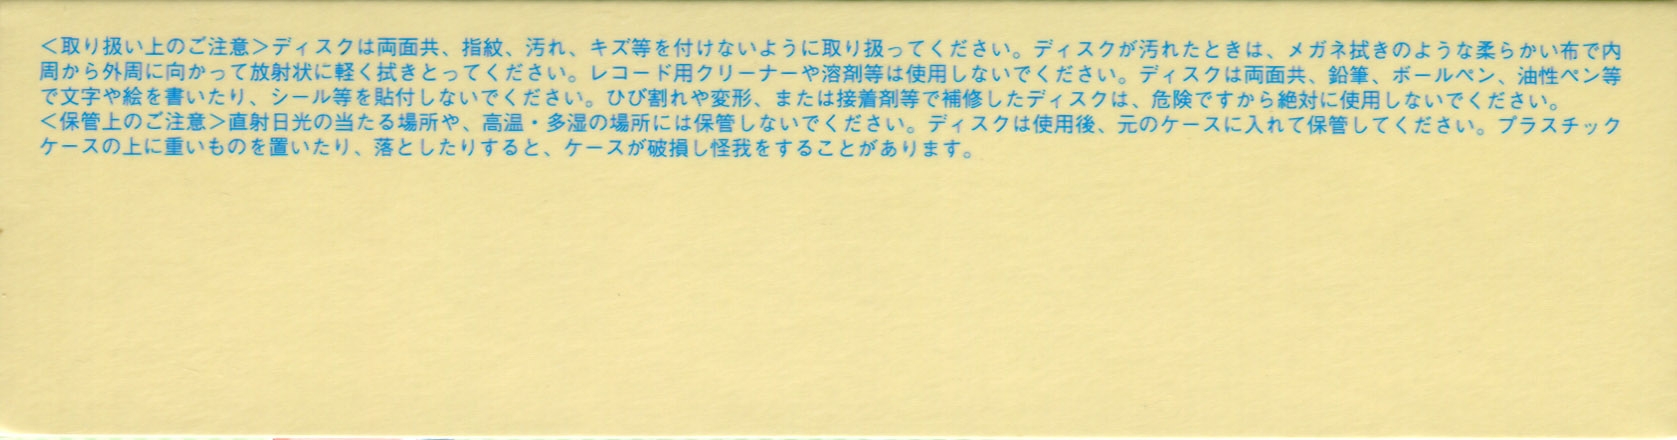 ＜取り扱い上のご注意＞ディスクは両面共、指紋、汚れ、キズ等を付けないように取り扱ってください。ディスクが汚れたときは、メガネ拭きのような柔らかい布で内
周から外周に向かって放射状に軽く拭きとってください。レコード用クリーナーや溶剤等は使用しないでください。ディスクは両面共、鉛筆、ボールペン、油性ペン等
で文字や絵を書いたり、シール等を貼付しないでください。ひび割れや変形、または接着剤等で補修したディスクは、危険ですから絶対に使用しないでください。
＜保管上のご注意＞直射日光の当たる場所や、高温・多湿の場所には保管しないでください。ディスクは使用後、元のケースに入れて保管してください。プラスチック
ケースの上に重いものを置いたり、落としたりすると、ケースが破損し怪我をすることがあります。